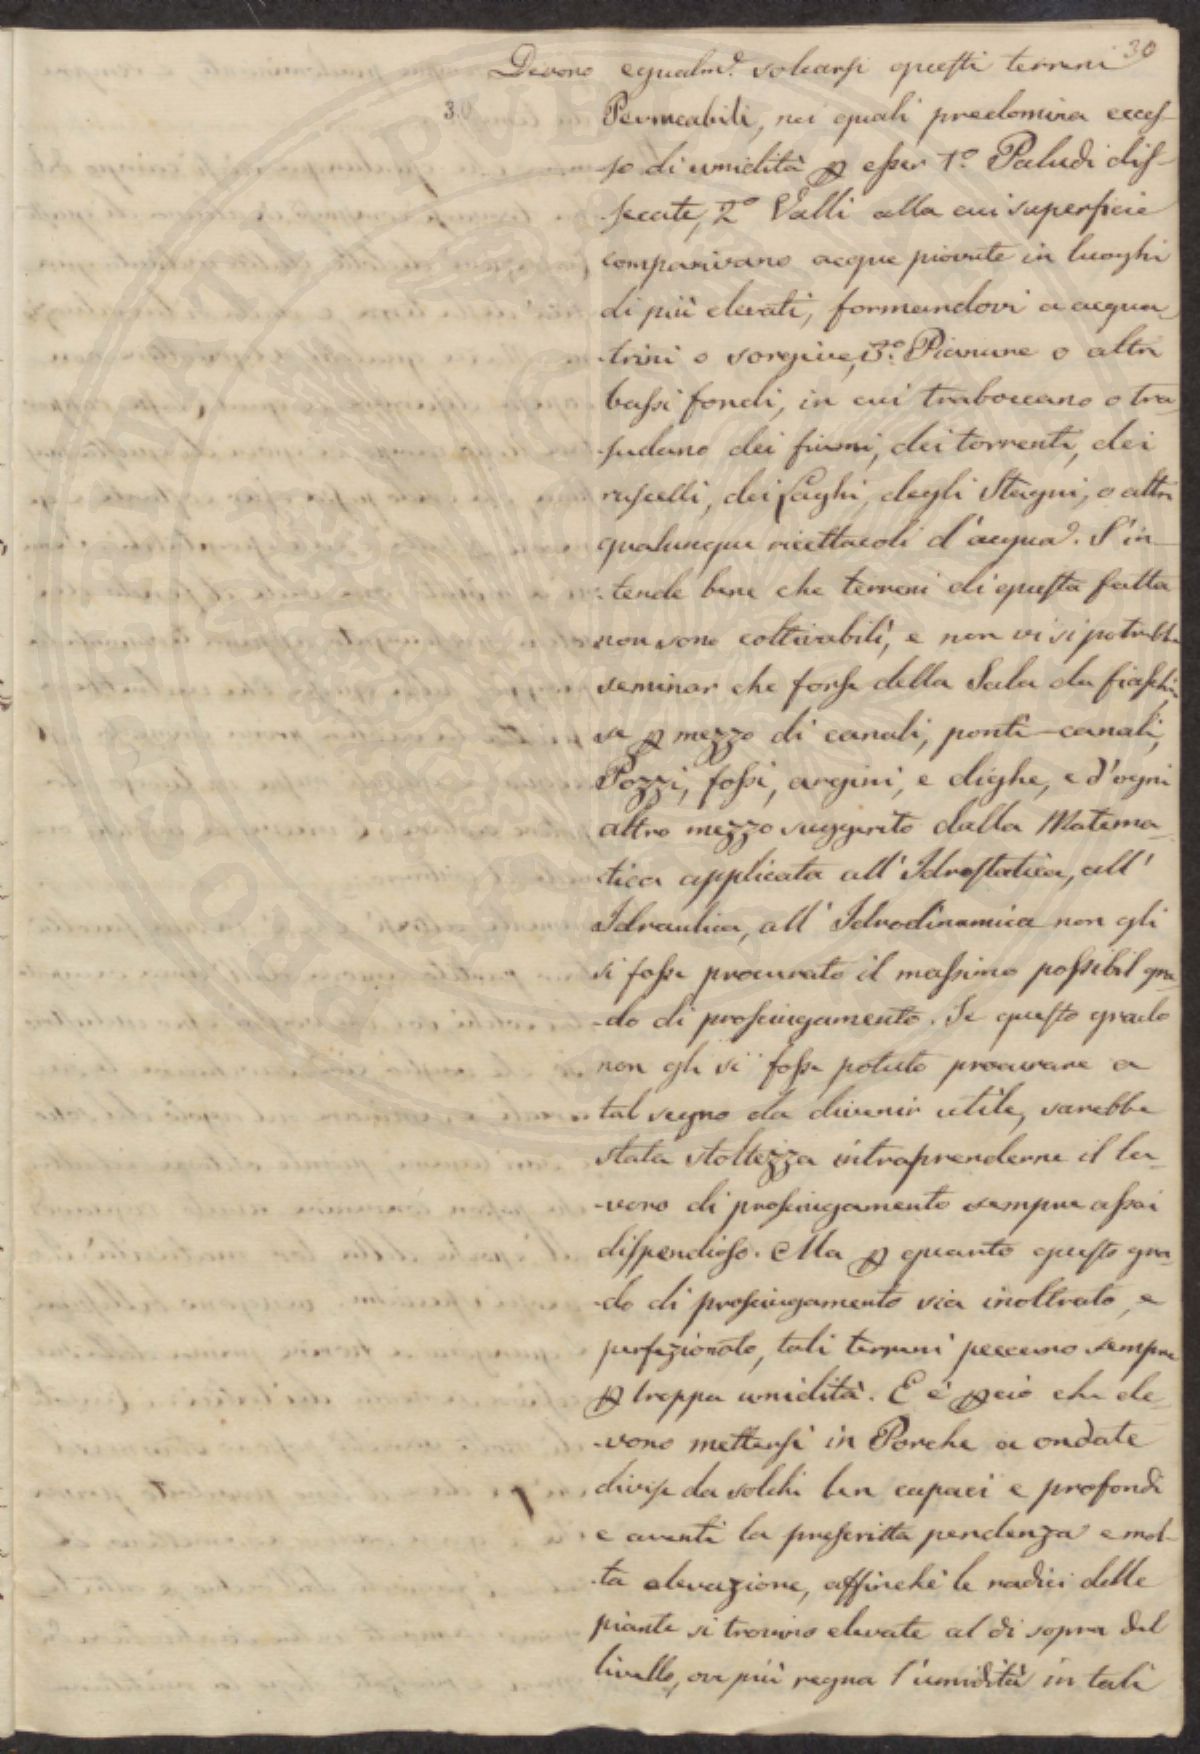 30
Devono egualm.e solcarsi questi terreni
30
Permeabili, nei quali predomina ecces-
so di umidità p esser 1.o Paludi dis-
seccate, 2.o Valli alla cui superficie
comparivano acque piovute in luoghi
di più elevati, formandovi acqua
-trini o sorgive, 3.o Pianure o altri
bassi fondi, in cui traboccano o tra
-sudano dei fiumi, dei torrenti, dei
ruscelli, dei Laghi, degli Stagni, o altri
qualunque ricettacoli d'acqua. S'in-
-tende bene che terreni di questa fatta
non sono coltivabili, e non vi si potrebbe
seminar che forse della Sala da fiaschi,
se p mezzo di canali, ponti-canali,
Pozzi, fossi, argini, e dighe, e d'ogni
altro mezzo suggerito dalla Matema-
-tica applicata all'Idrostatica, all'
Idraulica, all'Idrodinamica non gli
si fosse procurato il massimo possibil gra-
-do di prosciugamento. Se questo grado
non gli si fosse potuto procurare a
tal segno da divenir utile, sarebbe
stata stoltezza intraprenderne il la-
-voro di prosciugamento sempre assai
dispendioso. Ma p quanto questo gra-
-do di prosciugamento sia inoltrato, e
perfezionato, tali terreni peccano sempre
p troppa umidità. E è pciò che de-
-vono mettersi in Porche a ondate
divise da solchi ben capaci e profondi
e aventi la prescritta pendenza e mol-
-ta elevazione, affinchè le radici delle
piante si trovino elevate al di sopra del
livello, ove più regna l'umidità in tali